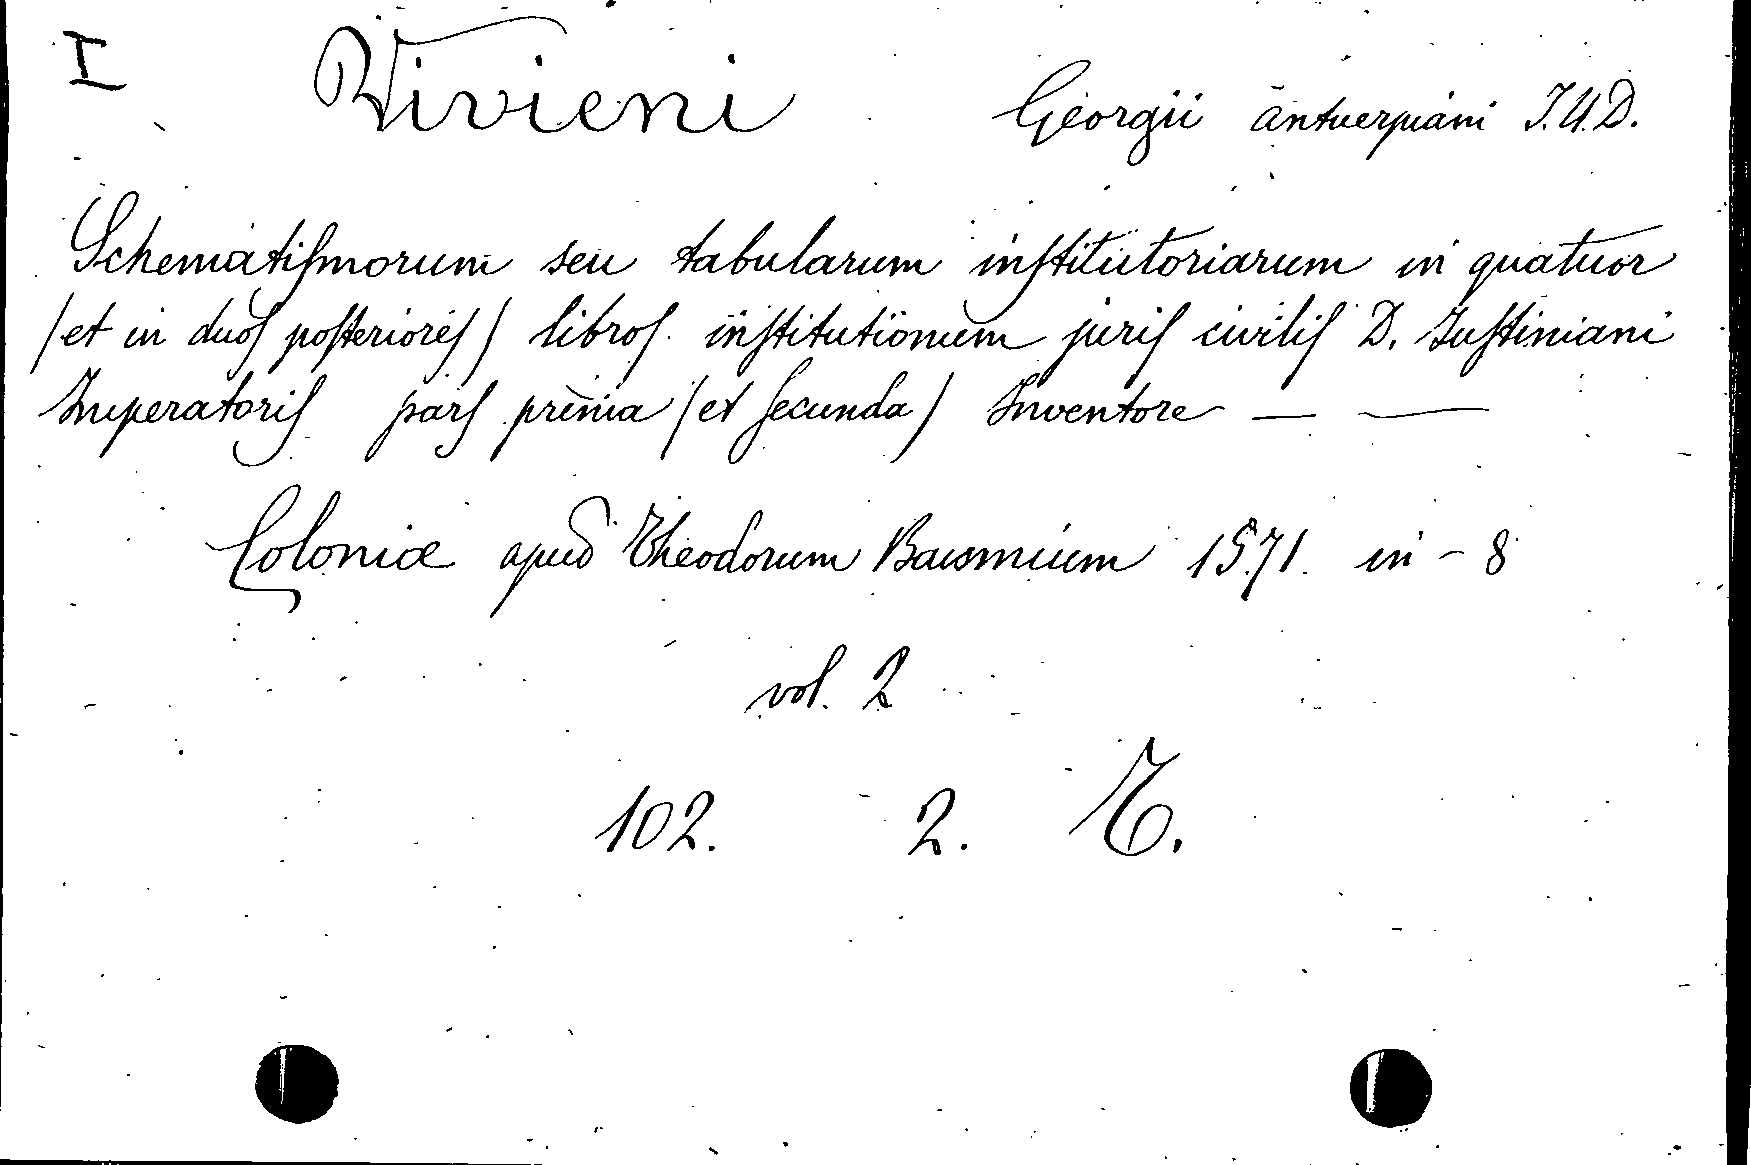 I Vivieni Georgii Antverpiani I.U.D.
Schematiſmorum seu tabularum inſtitutoriarum in quatuor
(et in duoſ poſterioreſ) libroſ inſtitutionum juriſ civiliſ D. Iuſtiniani
Imperatoriſ parſ prima (et ſecunda) Inventore — —
Coloniæ apud Theodorum Baumium 1571. in - 8
vol. 2
102. 2. T.